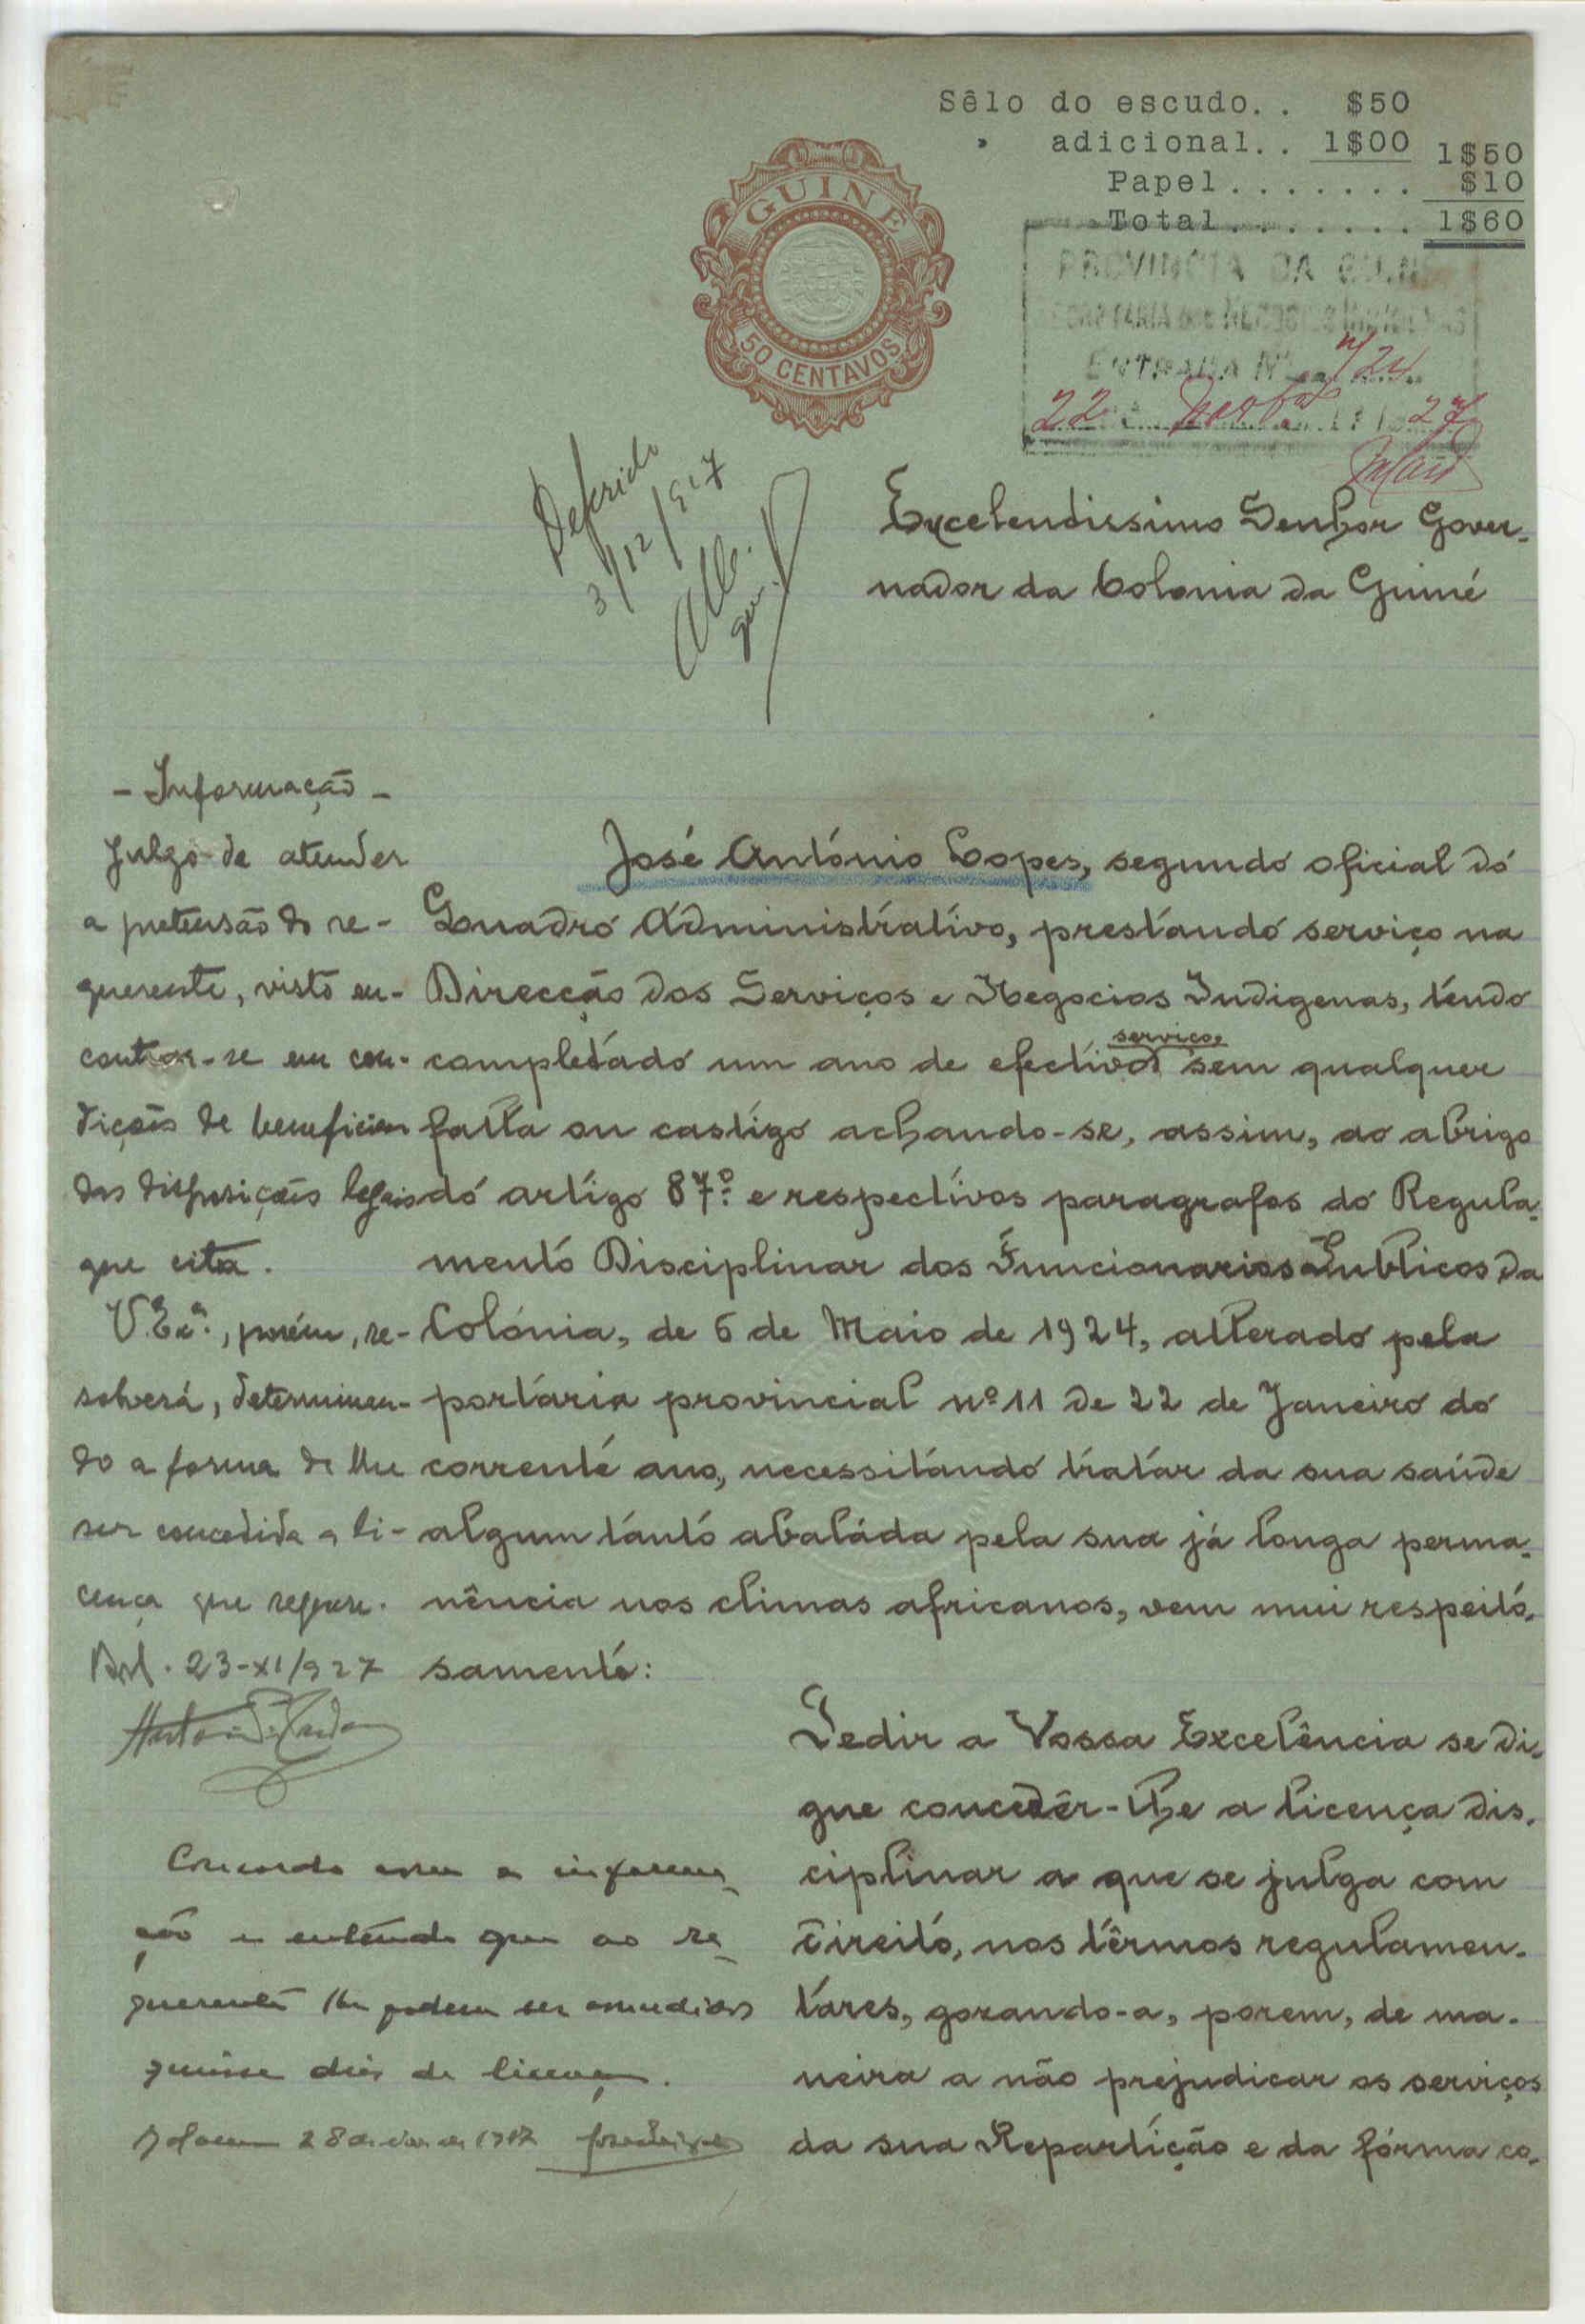 Sêlo do escudo.. $50
" adicional.. 1$00 1$50
Papel....... $10
Total....... 1$60
GUINÉ
50 CENTAVOS
PROVINCIA DA GUINÉ
ENTRADA Nº
22 27
Deferido
3/12/927
Excelentissimo Senhor Gover-
nador da Colonia da Guiné
- Informação -
Julgo de atender
a pretensão do re-
querente, visto en-
contrar-se em con-
dições de beneficiar
das disposições legais
que cita.
V. Exª., porém, re-
solverá, determinan-
do a forma de lhe
ser concedida a li-
cença que requere.
Bol. 23-XI/927
José António Lopes, segundo oficial do
Quadro Administrativo, prestando serviço na
Direcção dos Serviços e Negocios Indigenas, tendo
completado um ano de efectivo serviço, sem qualquer
falta ou castigo achando-se, assim, ao abrigo
do artigo 87º. e respectivos paragrafos do Regula-
mento Disciplinar dos Funcionarios Publicos da
Colónia, de 6 de Maio de 1924, alterado pela
portaria provincial nº 11 de 22 de Janeiro do
corrente ano, necessitando tratar da sua saúde
algum tanto abaláda pela sua já longa perma-
nência nos climas africanos, vem mui respeito-
samente:
Pedir a Vossa Excelência se di-
gne concedêr-lhe a licença dis-
ciplinar a que se julga com
direito, nos têrmos regulamen-
tares, gozando-a, porem, de ma-
neira a não prejudicar os serviços
da sua Repartição e da fórma co-
Concordo com a informa-
ção e entendo que ao re-
querente lhe podem ser concedidos
quinze dias de licença.
Bolama 28 de 1927